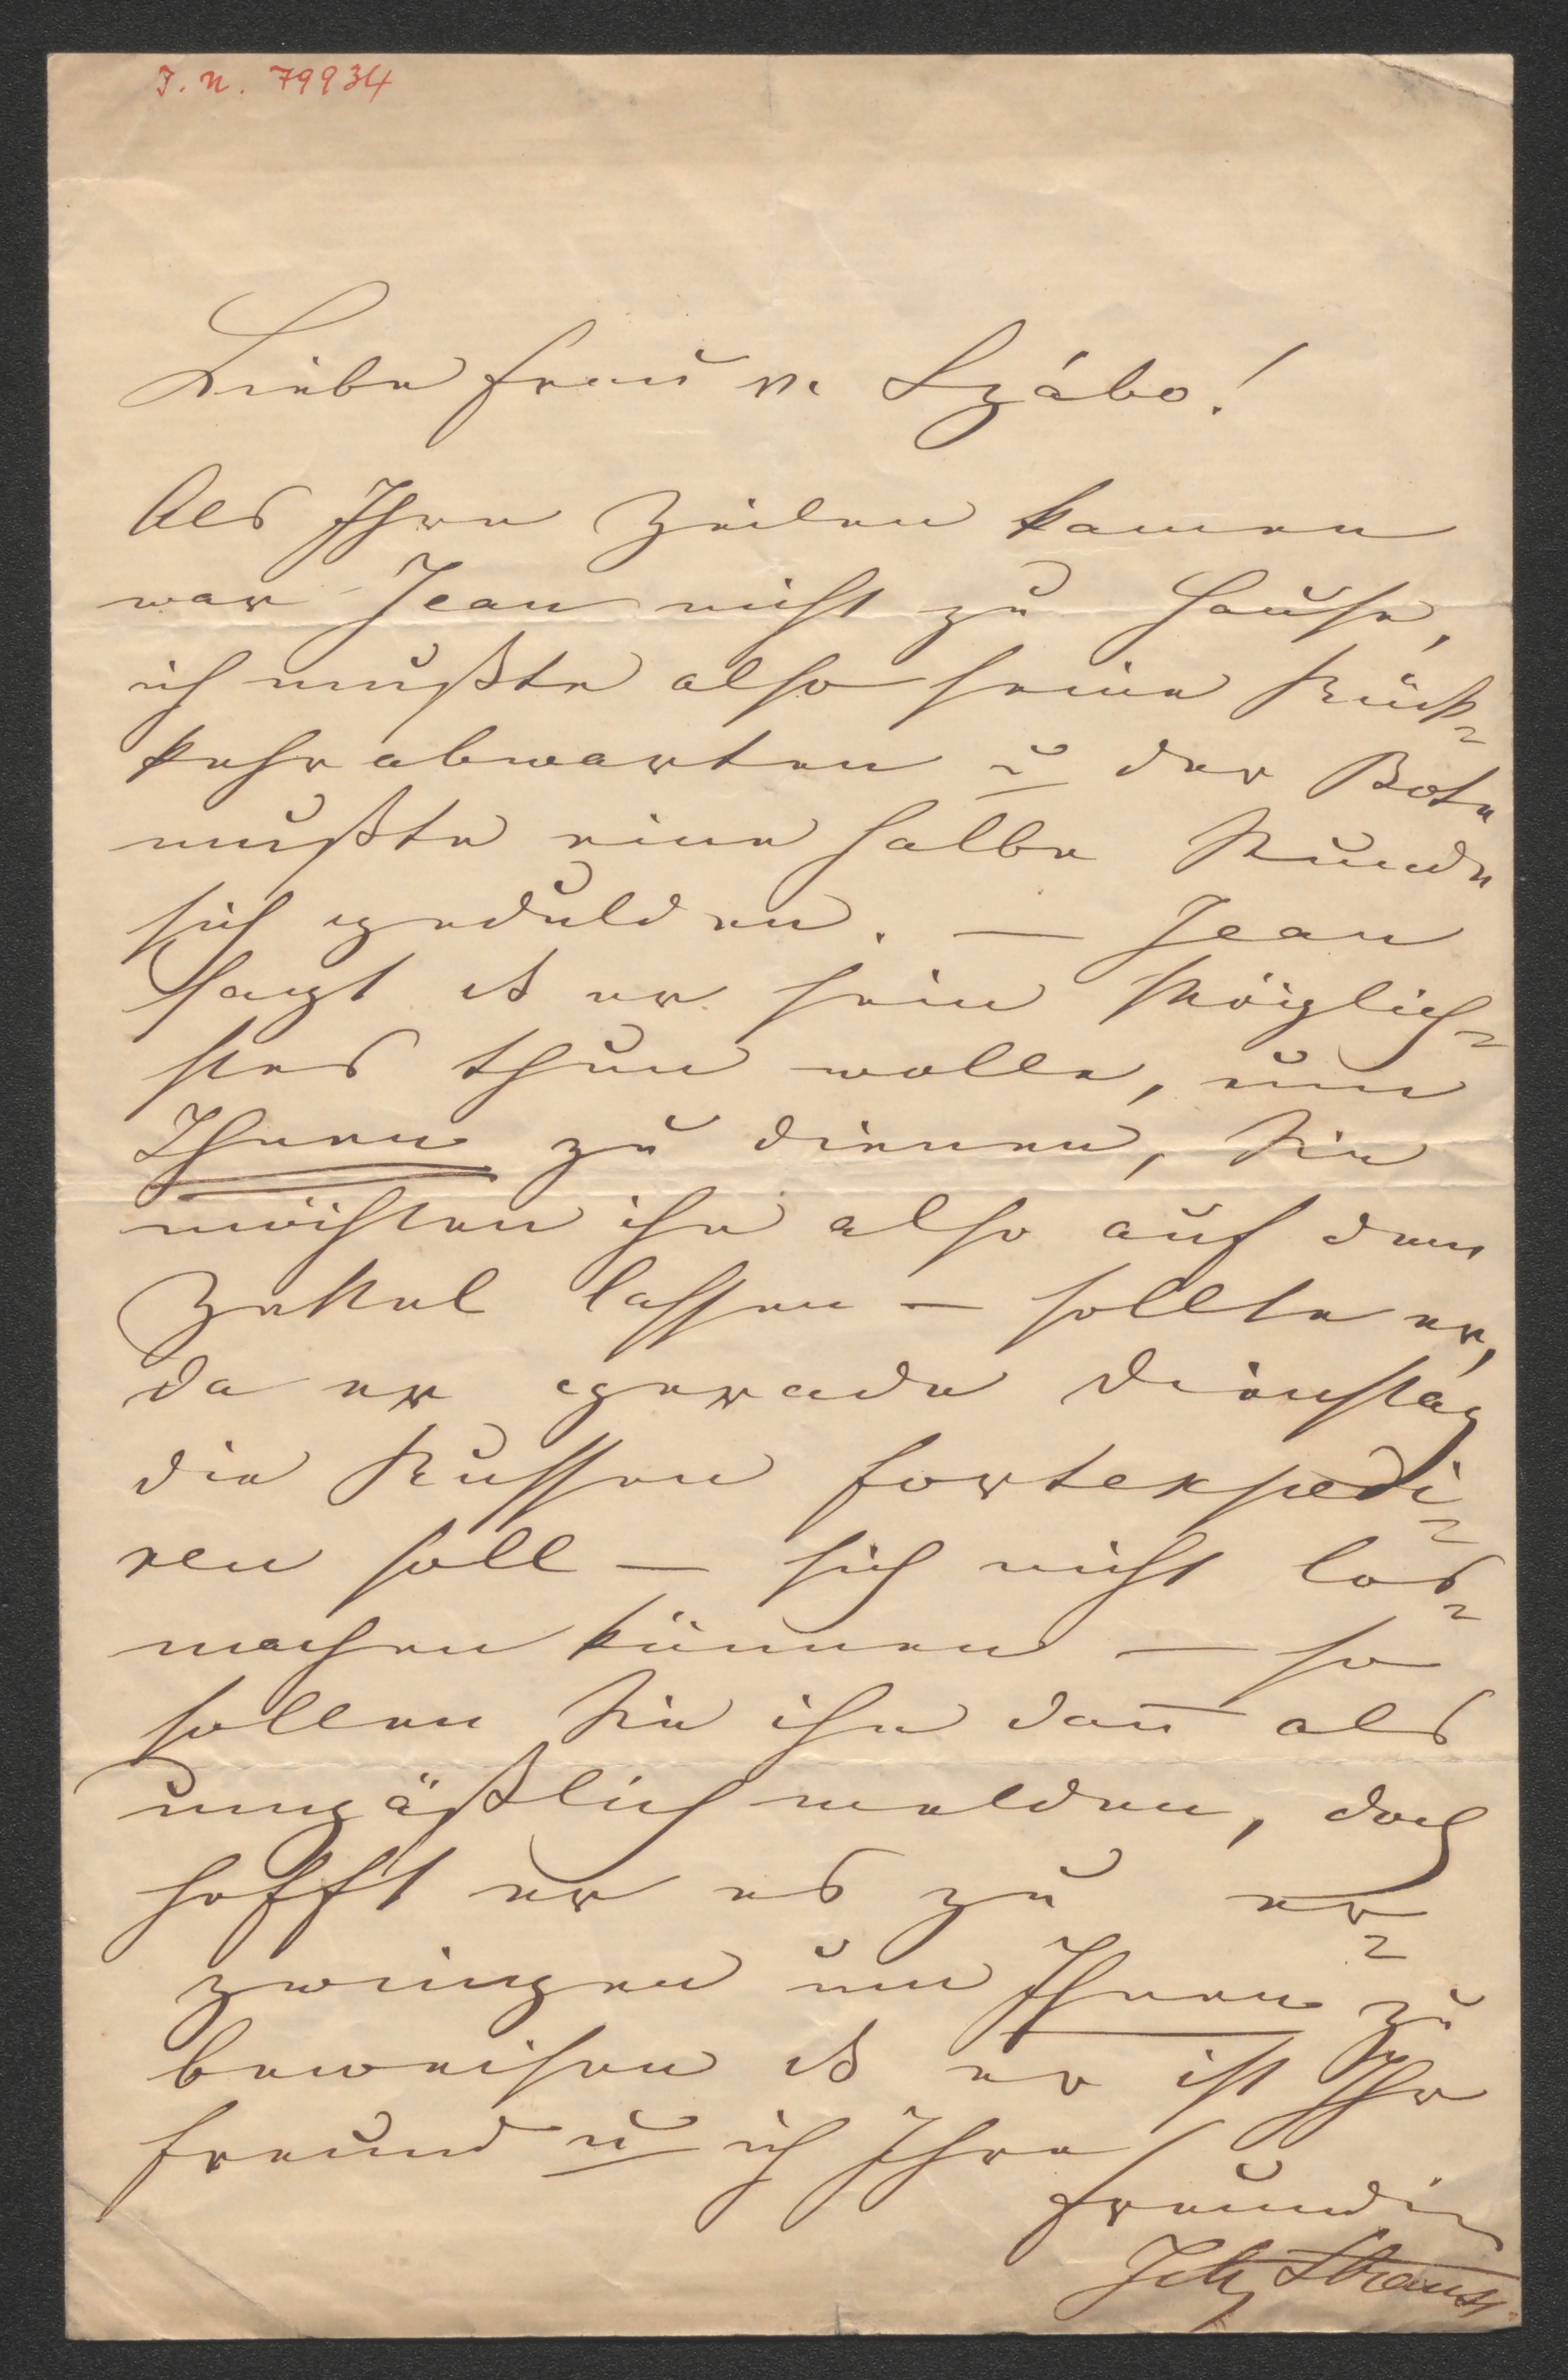 I. N. 79934
Liebe Frau v. Szábo!
Als Ihre Zeilen kamen
war Jean nicht zu Hause,
ich mußte also seine Rück-
kehr abwarten u der Bote
mußte eine halbe Stunde
sich gedulden. — Jean
sagt er sein Möglich-
stes thun wolle, um
Ihnen zu dienen, Sie
möchten ihn also auf dem
Zettel lassen — sollte er,
da er gerade Dienstag
die Russen fortexpedi-
ren soll — sich nicht los-
machen können — so
sollen Sie ihn dan̄ als
unpäßlich melden, doch
hofft er es zu er-
zwingen um Ihnen zu
beweisen er ist Ihr
Freund u ich Ihre
Freundin
Jetty Strauss